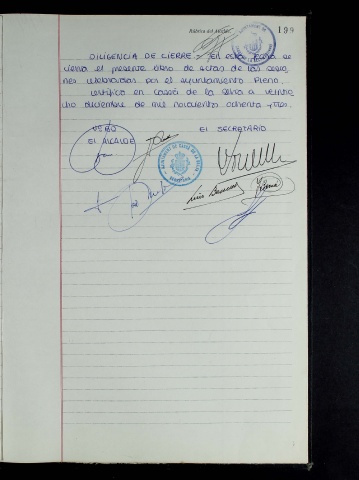 Rúbrica del Alcalde, 199
DILIGENCIA DE CIERRE.- En esta fecha se
cierra el presente libro de actas de las sesio-
nes celebradas por el ayuntamiento Pleno.
Certifico en Cassà de la Selva a veinti
de diciembre de mil novecientos ochenta y tres.
VºBº EL SECRETARIO
EL ALCALDE